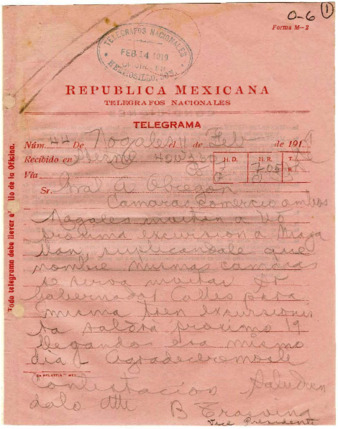 O-6 1
Forma M-2
TELEGRAFOS NACIONALES
FEB 14
HERMOSILLO, SON.
REPUBLICA MEXICANA
TELEGRAFOS NACIONALES
TELEGRAMA
Núm. 44 De Nogales el Feb de 191
Recibido en Hermo H.D. H.R. T.
Vía
Sr. Gral A Obregon
Camaras comercio ambos
Nogales invitan a Ud
proxima excursion a
suplicandole que
nombre mismas camaras
se sirva invitar Sr
Gobernador Calles para
misma tren excursionis
ta saldra proximo 19
llegando ese mismo
dia Agradeceremosle
contestacion Saludan
dolo Atte
B
Vice President
Todo telegrama debe llevar el sello de la Oficina.